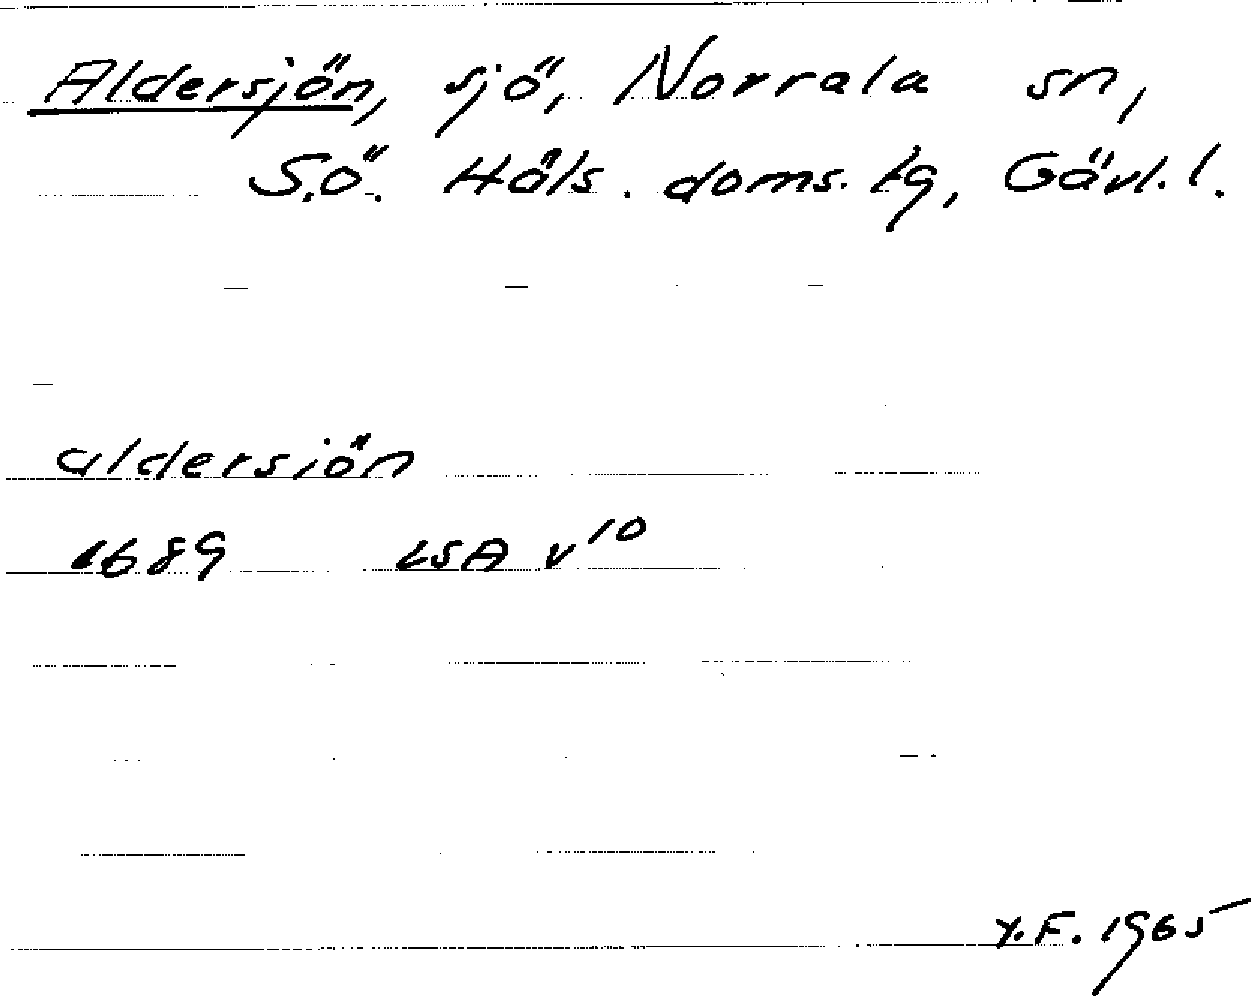 Aldersjön, sjö, Norrala sn,
S.ö. Häls. doms. tg, Gävl. l.
aldersiön
1689 LSA v¹⁰
Y.F. 1965